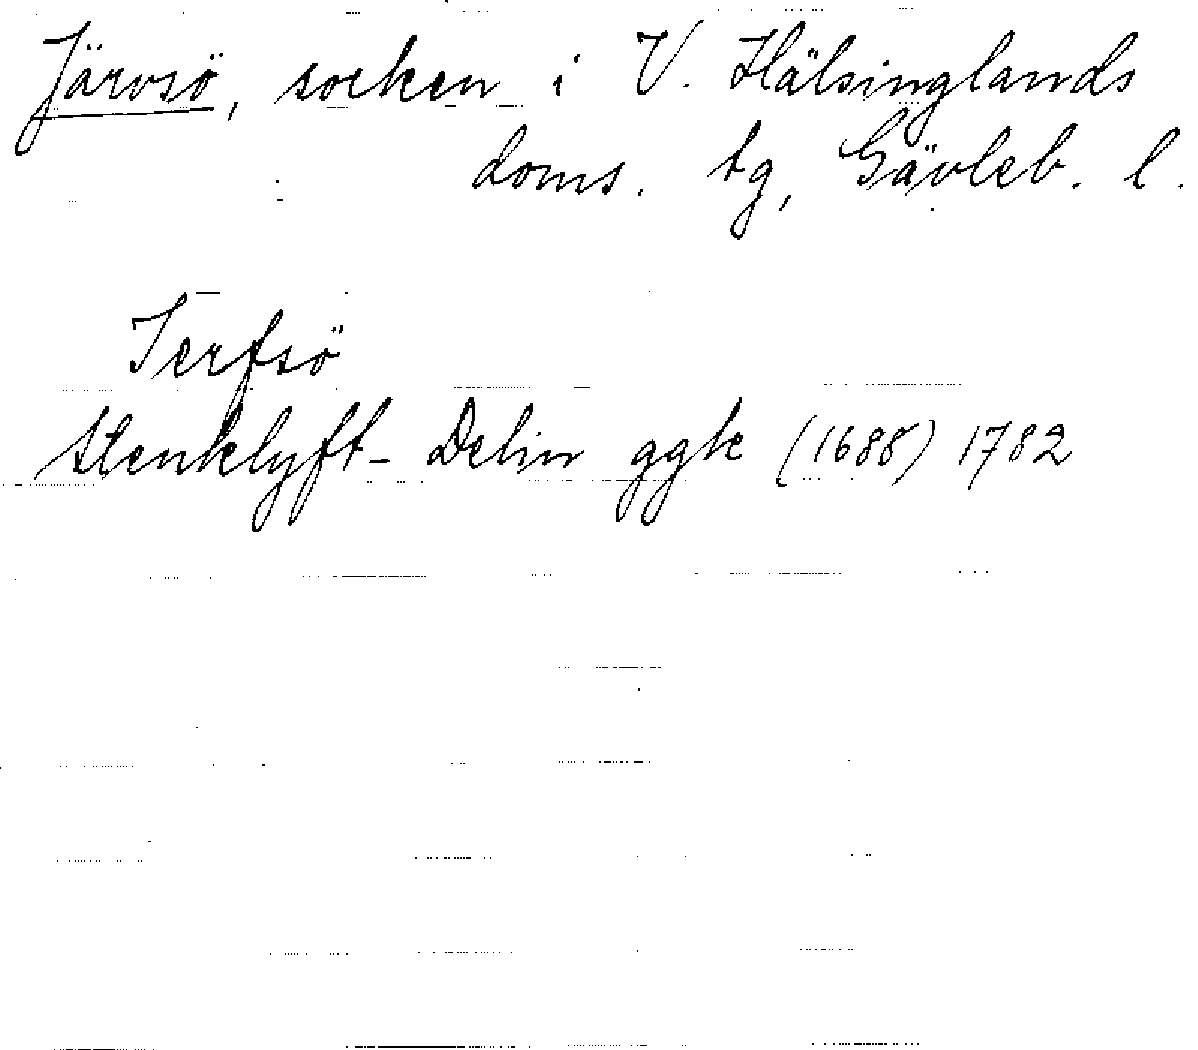 Järvsö, socken i V. Hälsinglands
doms. tg, Gävleb. l.
Jerfsö
Stenklyft- Delin ggk (1688) 1782